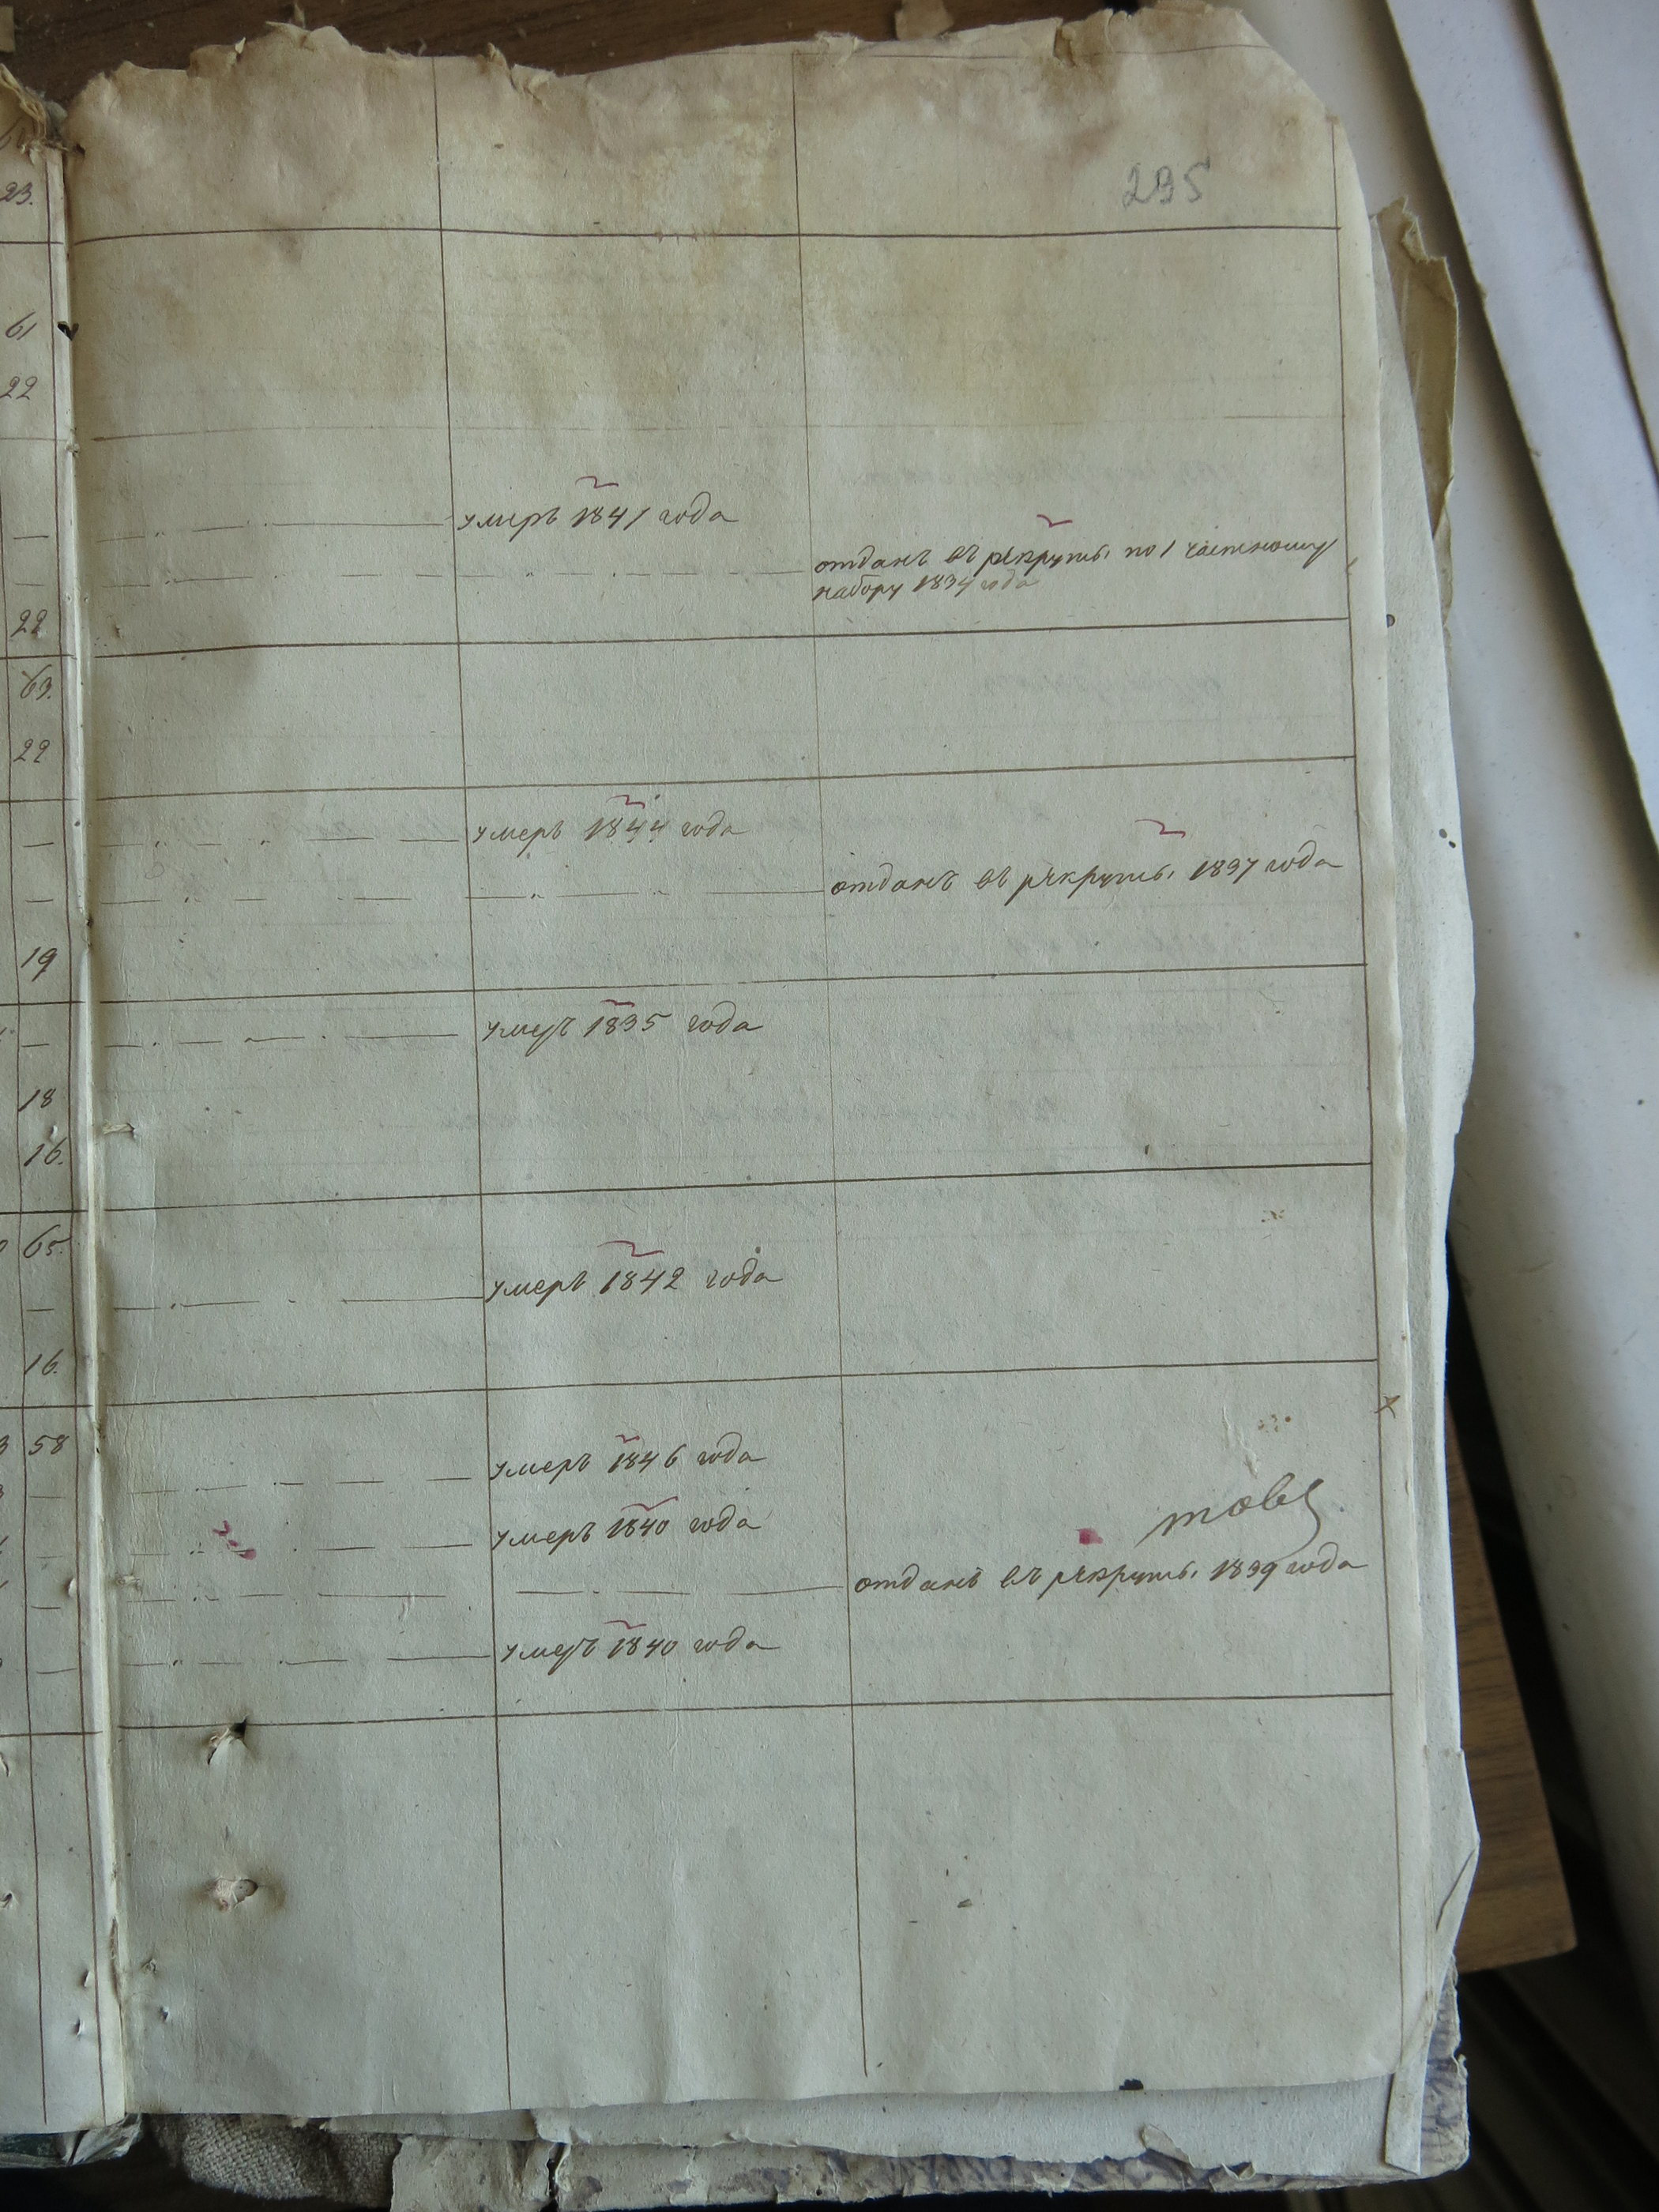 295
23.
61
22
умеръ 1841 года
отданъ въ рекруты по 1 частному
набору 1834 года
22
63.
22
умеръ 1844 года
отданъ въ рекруты 1837 года
19
умеръ 1835 года
18
16.
65.
умеръ 1842 года
16.
58
умеръ 1846 года
умеръ 1840 года
отданъ въ рекруты 1839 года
умеръ 1840 года